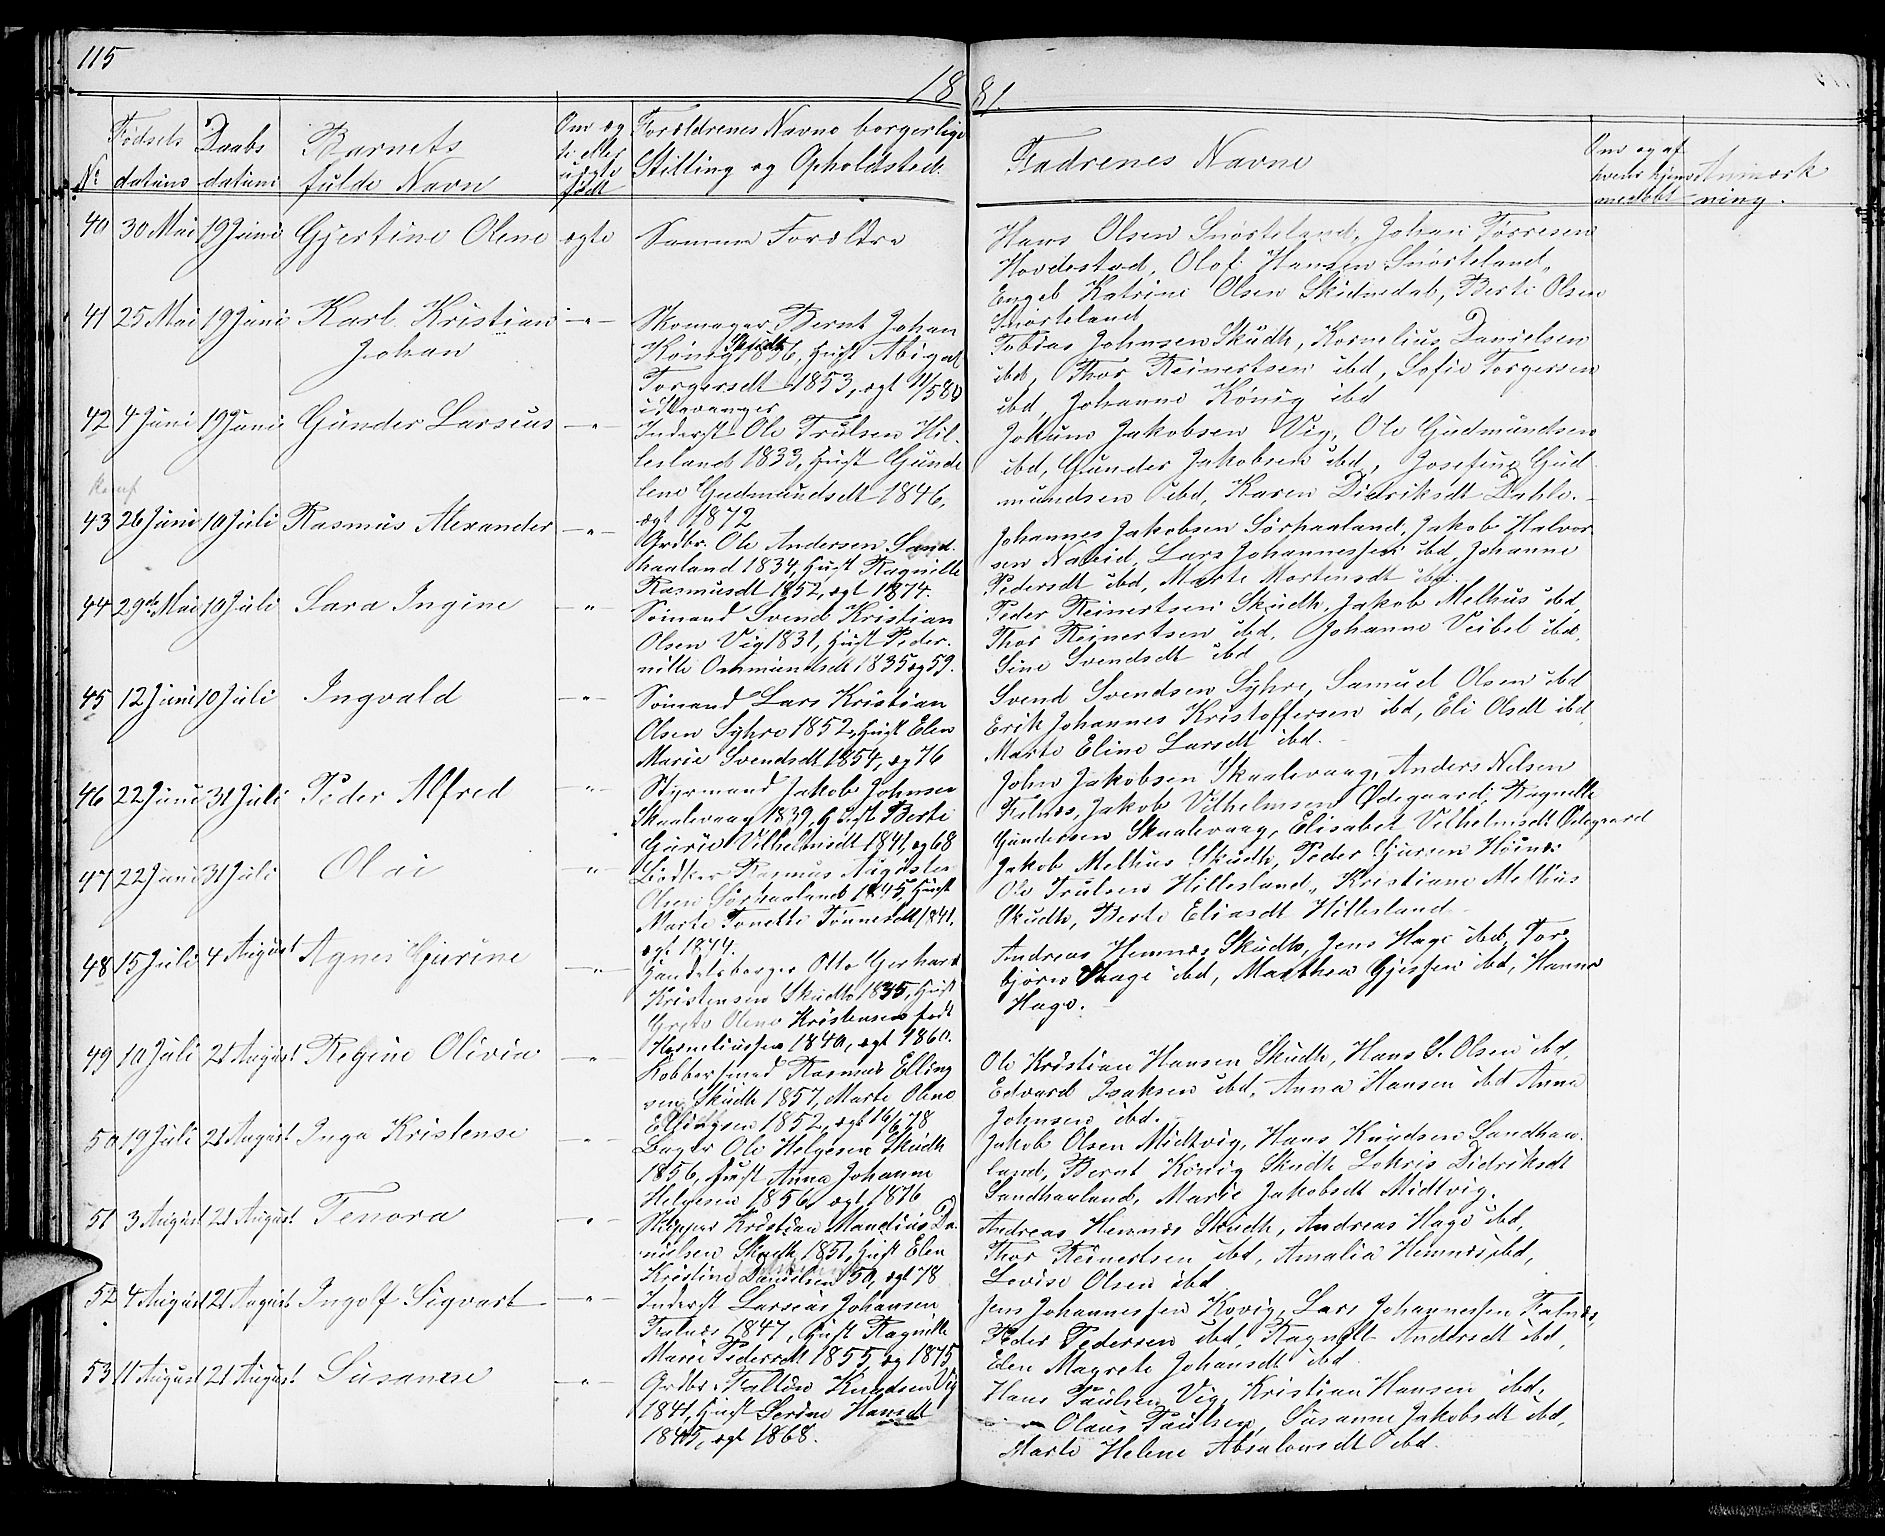 115
18 81.
Nr
Fødsels datum
Daabs datum
Barnets fulde Navn
Om ægte eller uægte født
Forældrenes Navne borgerlige Stilling og Opholdsted.
Fadrenes Navne
Om og af hvem hjemmedøbt
Anmærkning.
40 30 Mai 19 Juni Gjertine Olene ægte Samme Forældre
Hans Olsen Snørteland, Johan Tørresen
Hovdestad, Olof Hansen Snørteland,
Engeb Katrine Olsen Skudnedab, Berte Olsen
Snørteland
41 25 Mai 19 Juni Karl Kristian Johan -"-
Skomager Bernt Johan
König Skudh 1856, Hust Abigael
Torgersdt 1853, ægt 11/5 80
i Stavanger
Tobias Johnsen Skudh, Kornelius Danielsen
ibd, Thor Reinertsen ibd, Sofie Torgersen
ibd, Johanne König ibd
42 4 Juni 19 Juni Gunder Larsius -"-
Inderst Ole Trulsen Hil-
lesland 1833, Hust Gunde
lene Gudmundsdt 1846,
ægt 1872
Jokum Jakobsen Vig, Ole Gudmundsen
ibd, Gunder Jakobsen ibd, Josefine Gud
mundsen ibd, Karen Didriksdt Dahle.
43 26 Juni 10 Juli Rasmus Alexander -"-
Grdbr. Ole Andersen Sand-
haaland 1834, Hust Ragnille
Rasmusdt 1852, ægt 1874.
Johannes Jakobsen Sørhaaland, Jakob Halvor
sen Lars Johannessen ibd, Johanne
Pedersdt ibd, Marte Mortensdt ibd.
44 29de Mai 10 Juli Sara Ingine -"-
Sømand Svend Kristian
Olsen Vig 1831, Hust Peder-
nille Ommundsdt 1835 æg 59.
Peder Reinertsen Skudh, Jakob Melhus ibd,
Thor Reinertsen ibd, Johanne Veibel ibd,
Sine Svendsdt ibd
45 12 Juni 10 Juli Ingvald -"-
Sømand Lars Kristian
Olsen Syhre 1852, Hust Elen
Marie Svendsdt 1854, æg 76
Svend Svendsen Syhre, Samuel Olsen ibd
Erik Johannes Kristoffersen ibd, Eli Olsdt ibd
Marte Eline Larsdt ibd.
46 22 Juni 31 Juli Peder Alfred -"-
Styrmand Jakob Johnsen
Skaalevaag 1839, Hust Berte
Gurie Vilhelmsdt 1841, æg 68
John Jakobsen Skaalevaag, Anders Nilsen
Falnes, Jakob Vilhelmsen Ødegaard, Ragnille
Gundersen Skaalevaag, Elisabet Vilhelmsdt Ødegaard
47 22 Juni 31 Juli Olai -"-
Rasmus Augustin
Olsen Sørhaaland 1845, Hust
Marte Tonette Tønnesdt 1841,
ægt 1874.
Jakob Melhus Skudh, Peder Hüinæs
Ole Trulsen Hillesland, Kristiane Melhus
Skudh, Berte Eliasdt Hillesland
48 15 Juli 4 August Agnes Gurine -"-
Handelsborger Otto Gerhard
Kristensen Skudh 1835, Hust
Grete Olene Kristensen født
Korneliussen 1840, ægt 1860.
Andreas Hemnæs Skudh, Jens Hage ibd, Tor-
bjørn Hage ibd, Marthea Gjessen ibd, Hanna
Hage.
49 10 Juli 21 August Regine Olivia -"-
Kobbersmed Rasmus Elling
sen Skudh 1857, Marte Olene
Ellingsen 1852, ægt 16/6 78
Ole Kristian Hansen Skudh, Hans S. Olsen ibd,
Edvard Isaksen ibd, Anna Hansen ibd Anna
Johnsen ibd.
50 19 Juli 21 August Inga Kristense -"-
Bager Ole Helgesen Skudh
1856, Hust Anna Johanne
Helgesen 1856, ægt 1876
Jakob Olsen Midtvig, Hans Knudsen Sandhaa-
land, Bernt König Skudh Didriksdt
Sandhaaland, Marie Jakobsdt Midtvig.
51 3 August 21 August Tenora -"-
Skipper Kristian Mandius Da-
nielsen Skudh 1851, Hust Elen
Kristine Danielsen 50, ægt 78
Andreas Hemnæs Skudh, Andreas Hage ibd,
Thor Reinertsen ibd, Amalia Hemnæs ibd,
Lovise Olsen ibd
52 4 August 21 August Ingolf Sigvart -"-
Inderst Larsius Johansen
Falnæs 1847, Hust Ragnille
Marie Pedersdt 1855, æg 1875
Jens Johannessen Kovig, Lars Johannessen Falnæs,
Peder Pedersen ibd, Ragnille Andersdt ibd,
Elen Magrete Johansdt ibd.
53 11 August 21 August Susanne -"-
Grdbr. Knudsen Vig
1841, Hust Serine Hansdt
1845, ægt 1868.
Hans Paulsen Vig, Kristian Hansen ibd,
Olaus Paulsen, Susanne Jakobsdt ibd,
Marte Helene Absalonsdt ibd.